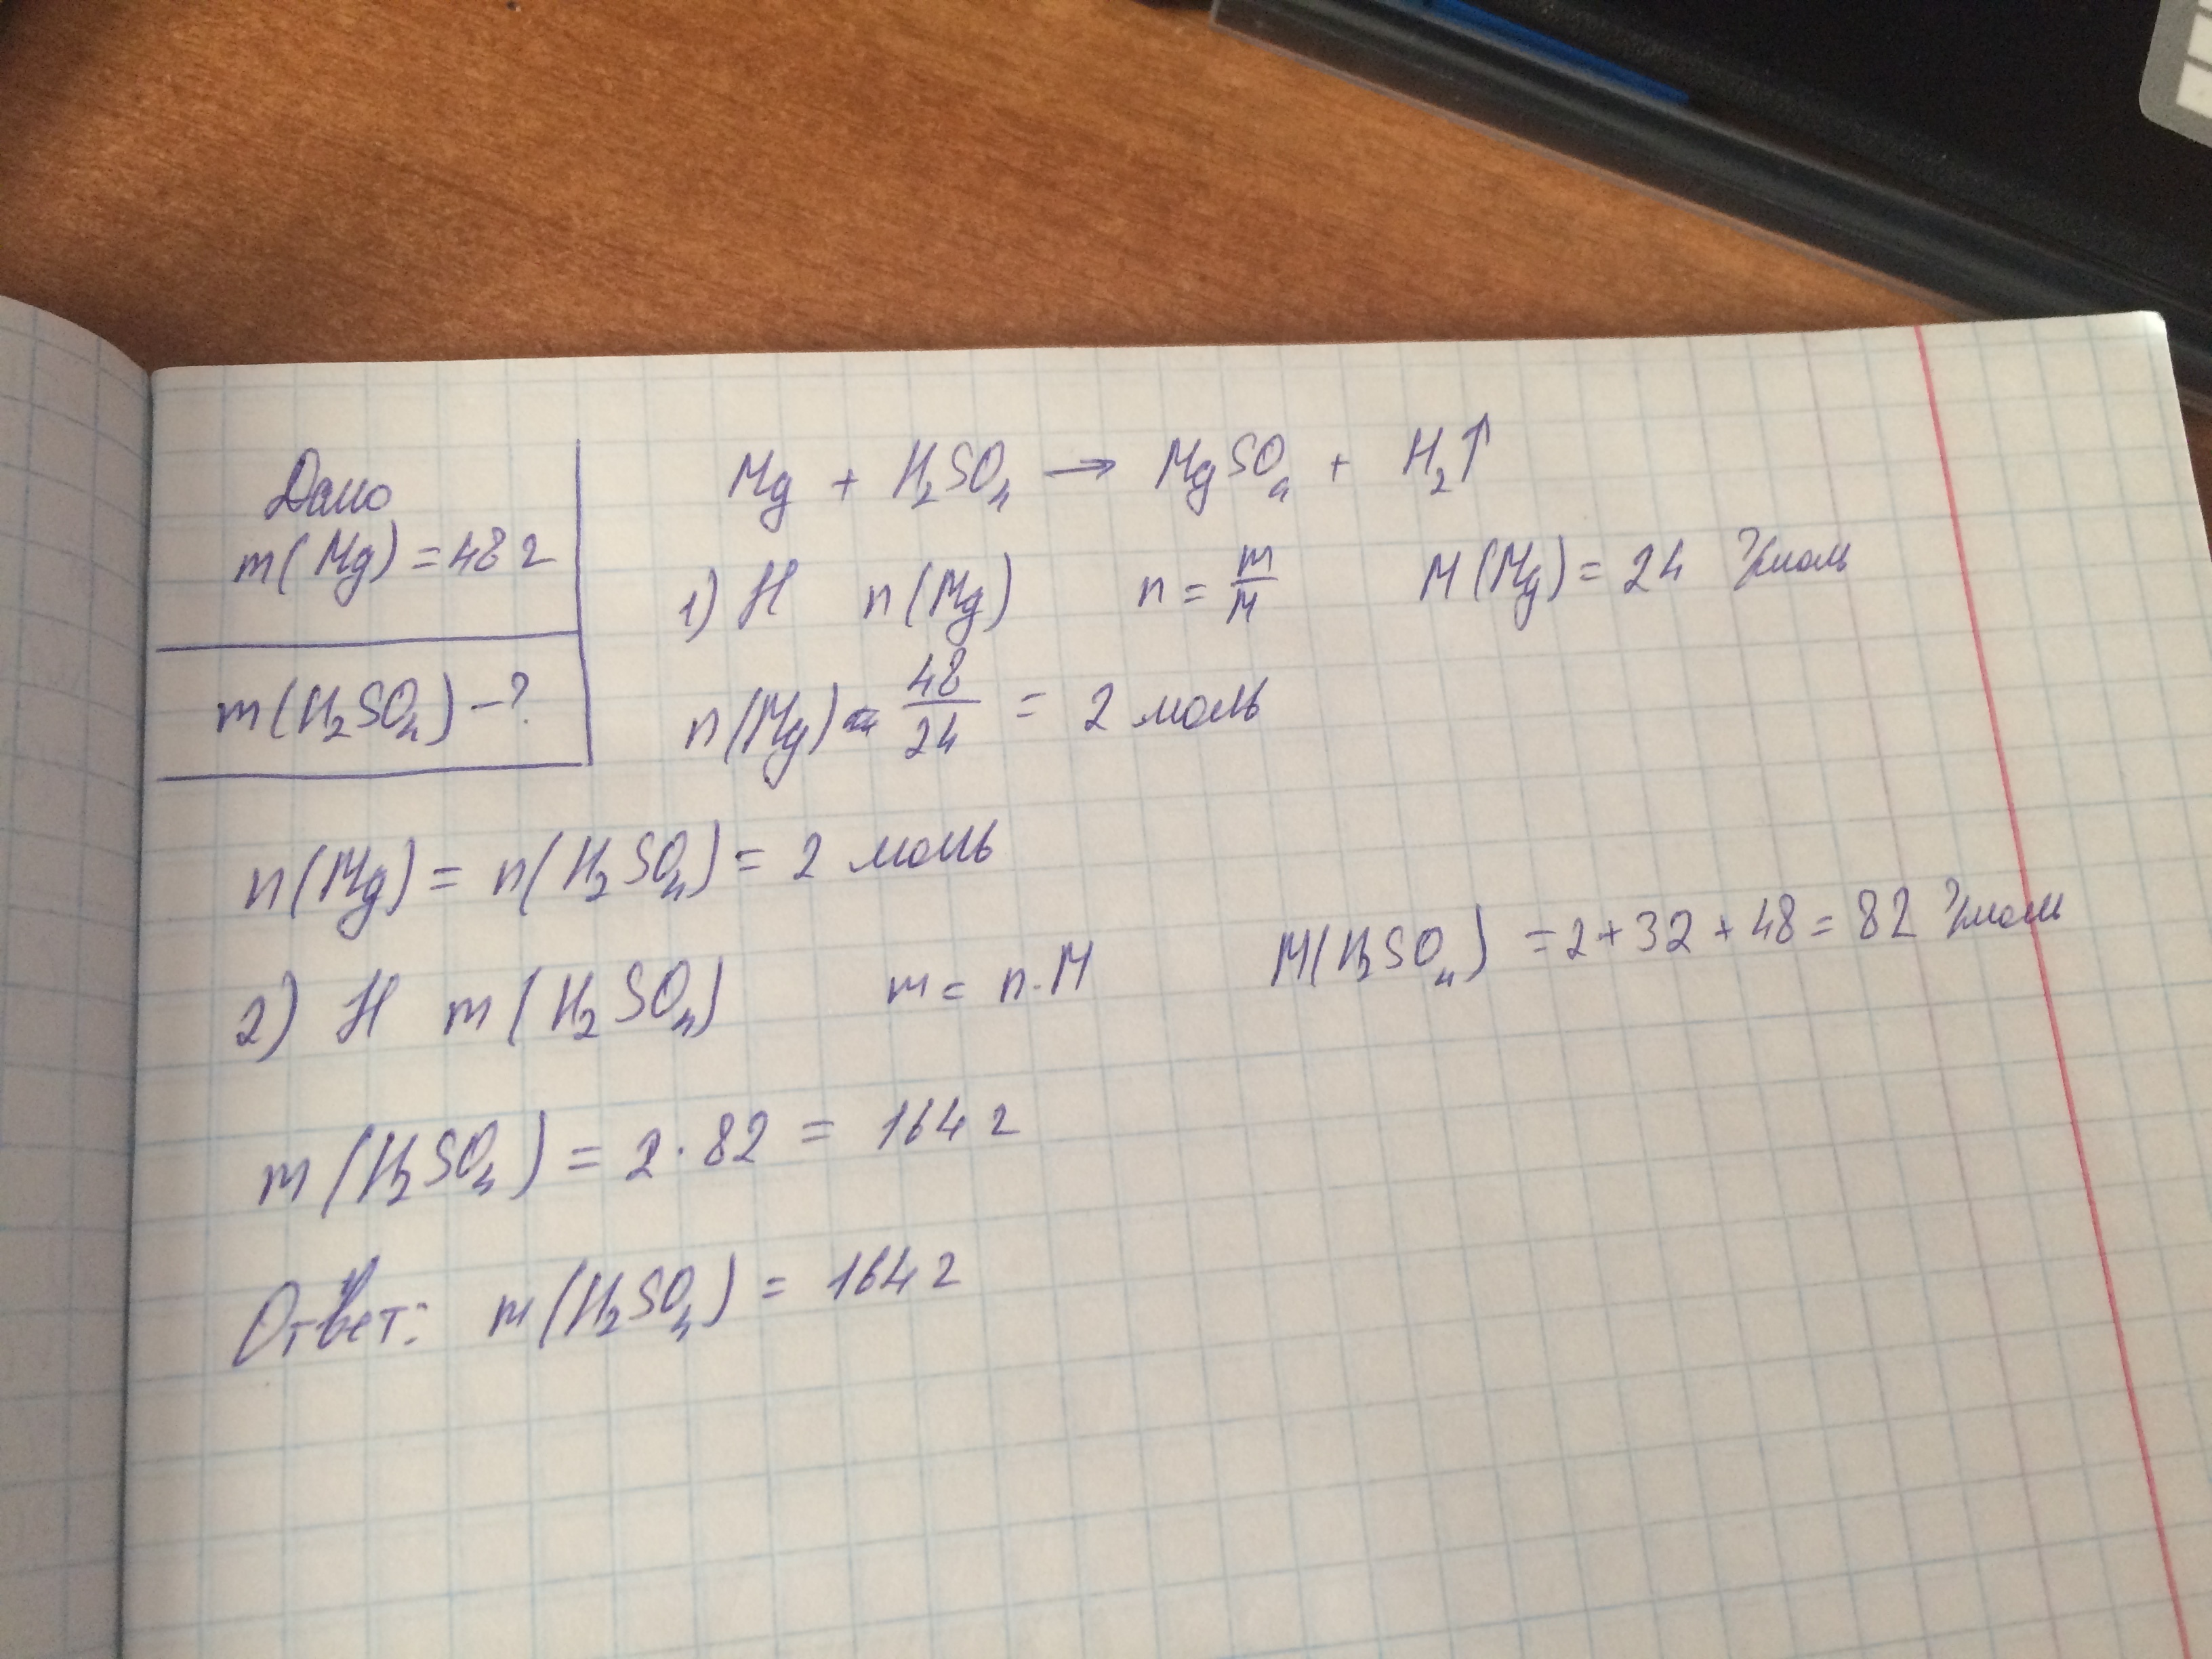 Дано
m(Mg) = 48 г
m(H₂SO₄) – ?
Mg + H₂SO₄ → MgSO₄ + H₂↑
1) Н n(Mg) n = m/M M(Mg) = 24 г/моль
n(Mg) = 48/24 = 2 моль
n(Mg) = n(H₂SO₄) = 2 моль
2) Н m(H₂SO₄) m = n·M M(H₂SO₄) = 2 + 32 + 48 = 82 г/моль
m(H₂SO₄) = 2·82 = 164 г
Ответ: m(H₂SO₄) = 164 г